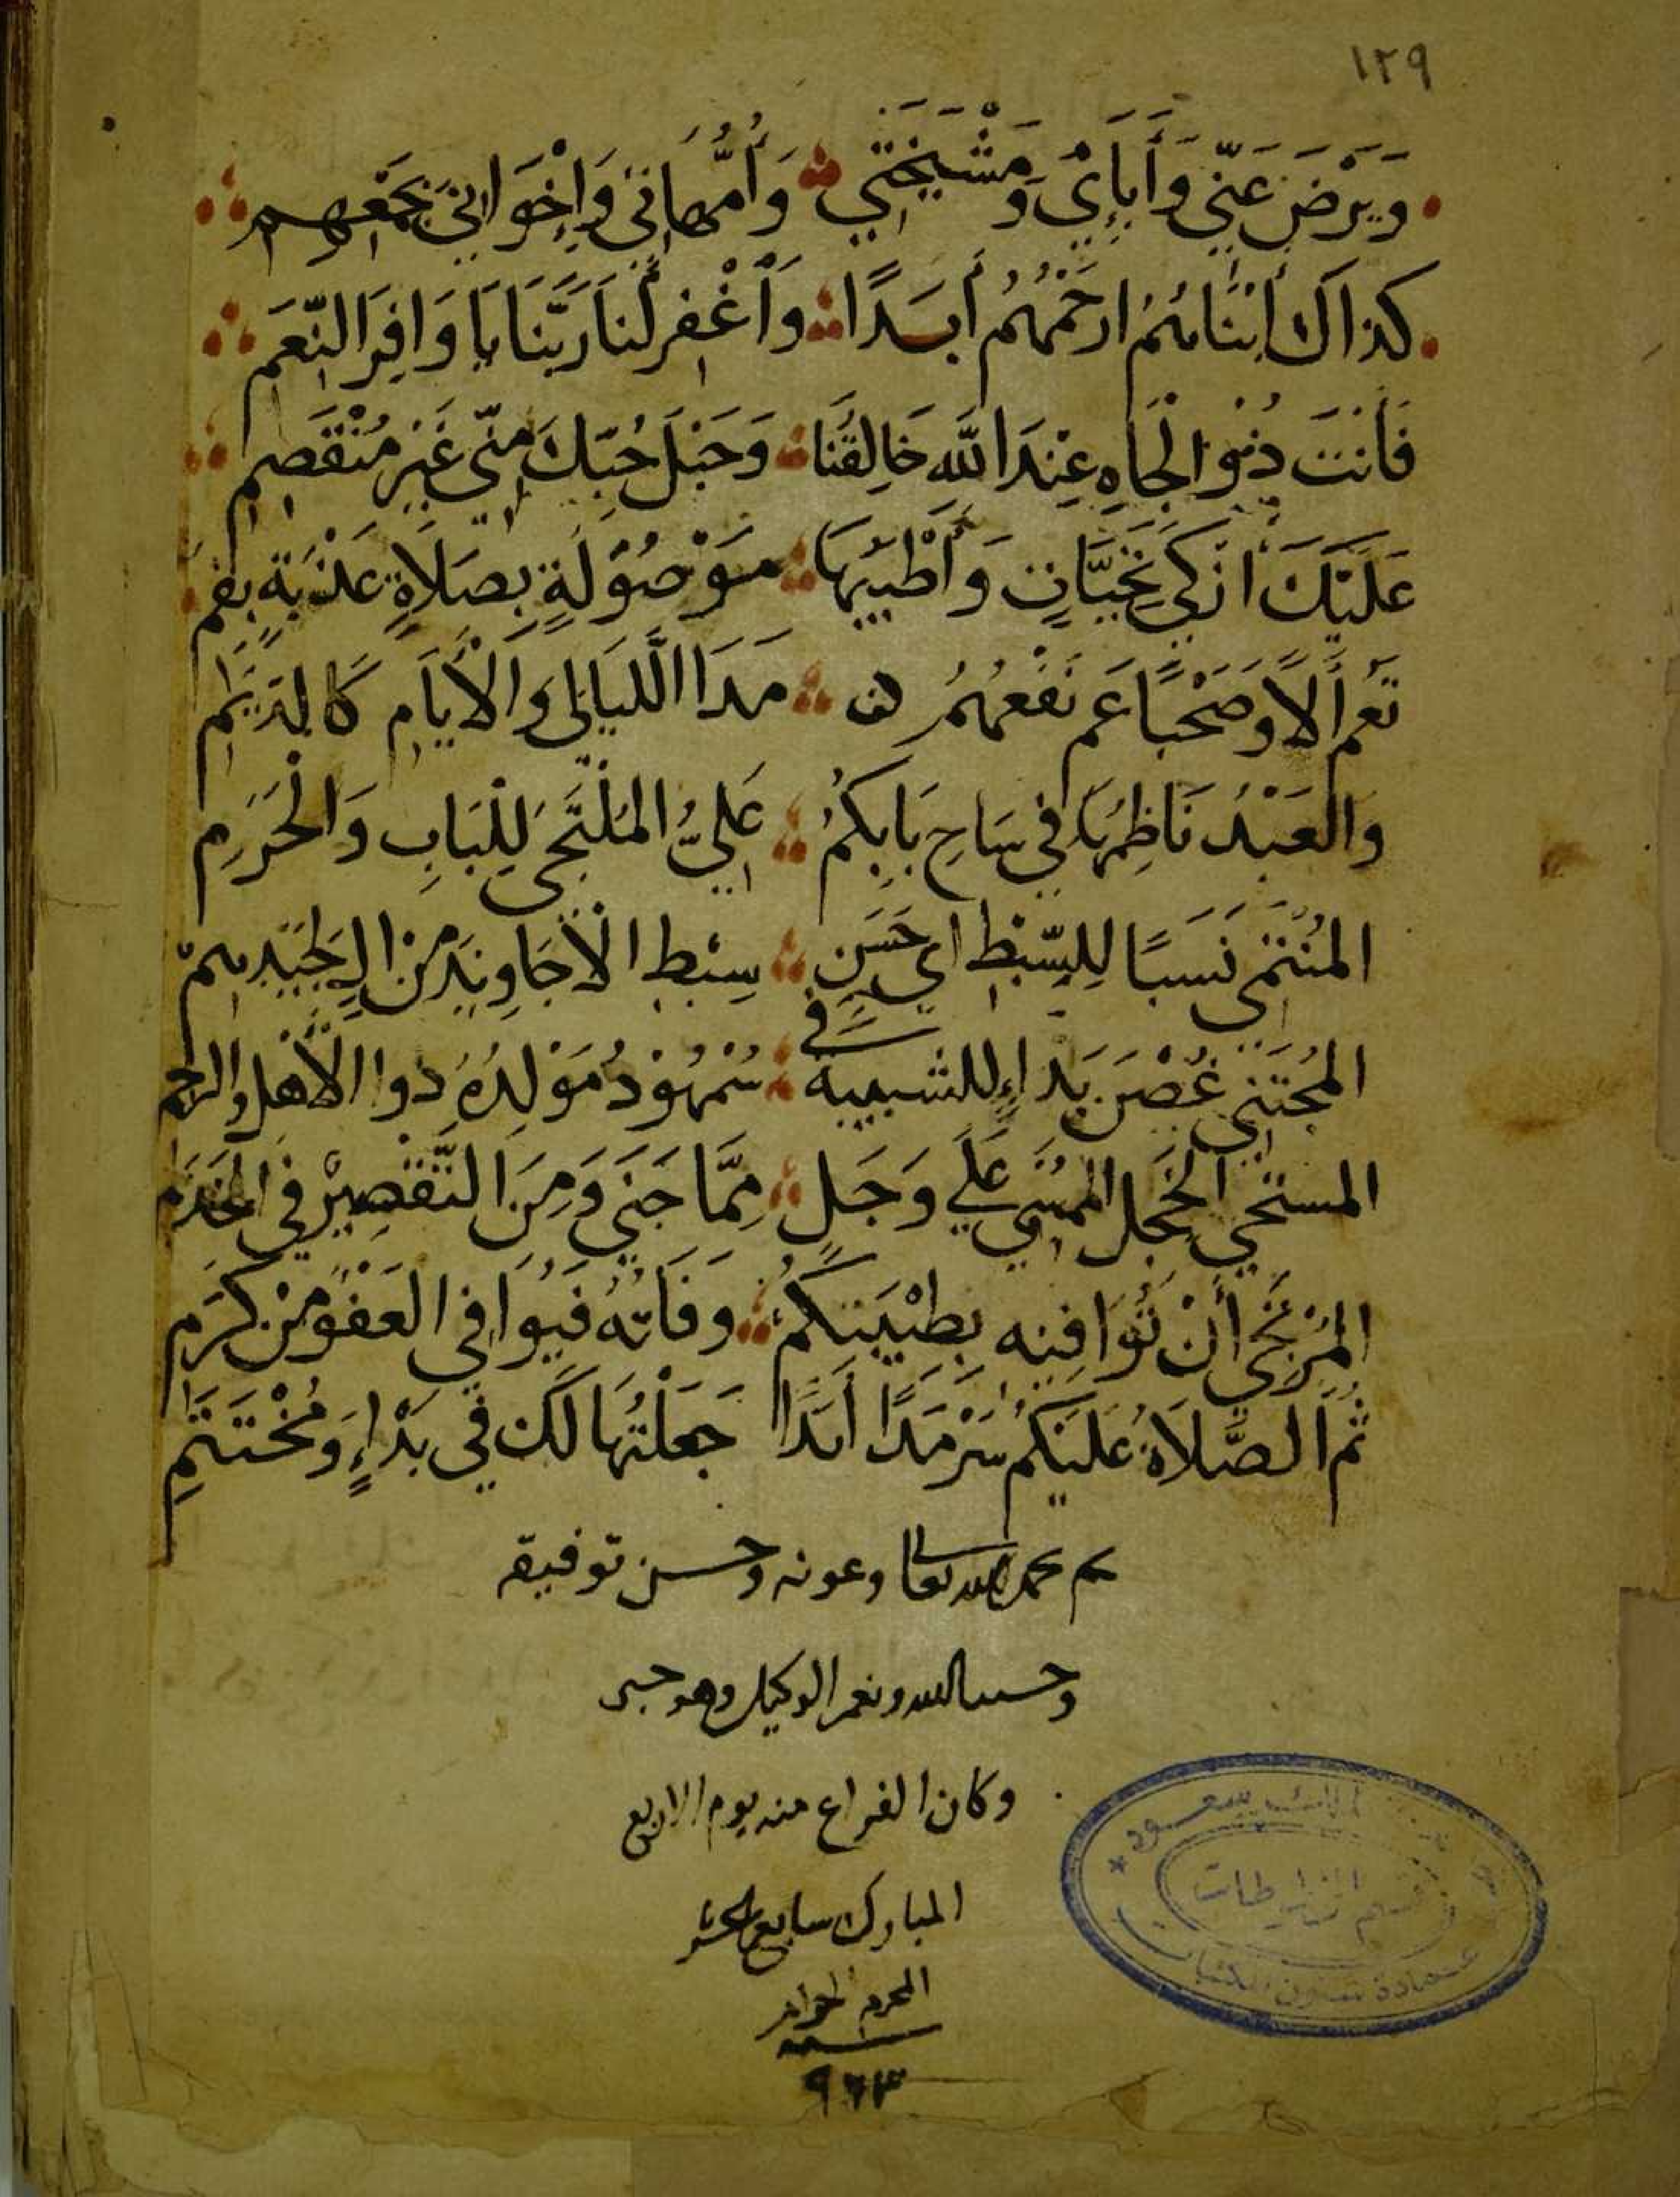 ١٢٩
وَيَرْضَ عَنِّي وَأَبَآئِي وَمَشْيَخَتِي وَأُمَّهَاتِي وَإِخْوَانِي بِجَمْعِهِمِ
كذاك أَبْنَائهُمُ ارْحَمْهُمُ أَبَدًا وَأَغْفِر لَنَا رَبَّنَا يَا وَافِرَ النِّعَمِ
فَأَنْتَ ذُو الْجَاهِ عِنْدَ اللَّهِ خَالِقُنَا وَحَبْلُ حُبِّكَ مِنِّي غَيْرُ مُنْقَصِمِ
عَلَيْكَ أَزْكَى تَحِيَّاتٍ وَأَطْيَبُهَا مَوْصُولَةٍ بِصَلَاةٍ عَذْبَةٍ بِفَمِ
تَعُم أَلًا وَصَحْبًا عَم نَفْعُهُمُ مَدَا اللَّيَالِي وَالْأَيَّامِ كَالدِّيَمِ
وَالْعَبْدُ نَاظِمُهَا فِي سَاحِ بَابِكُمُ عَلِيُّ الْمُلْتَجِي لِلْبَابِ وَالْحَرَمِ
الْمُنْتَمِي نَسَبًا لِلسِّبْطِ اي حَسَنِ سِبْطِ الْأَجَاوِيدِ مِنْ الـ
الْمُجْتَنِي غُصْن بَدَاءٍ للشبيبة في سُمْهُودُ مَوْلِدُهُ ذوا الْأَهْلِ والرحم
المستحي الخَجِل المُسِي عَلَى وَجَلٍ مِمَّا جَنَى وَمِنَ التَّقْصِيرِ فِي الخَدَمِ
الْمُرْتَجِي أَنْ تُوَافِيْهِ بِطَيْبَتِكُمُ وَفَاتُهُ فَيُوَافِي الْعَفْوُ مِنْ كَرَمِ
ثُمَّ الصَّلَاةُ عَلَيْكُمْ سَرْمَدًا أَبَدًا جَعَلْتُهَا لَكَ فِي بَدْاءٍ وَمُخْتَتَمِ
تم بحمد الله تعالى وعونه وحسن توفيقه
وحسبنا الله ونعم الوكيل وهو حسبي
وكان الفراغ منه يوم الاربع
المبارك سابع عشر
المحرم الحرام
سنة
٩٦٣
الملك سعود
قسم المخطوطات
عمادة شؤون المكتبات